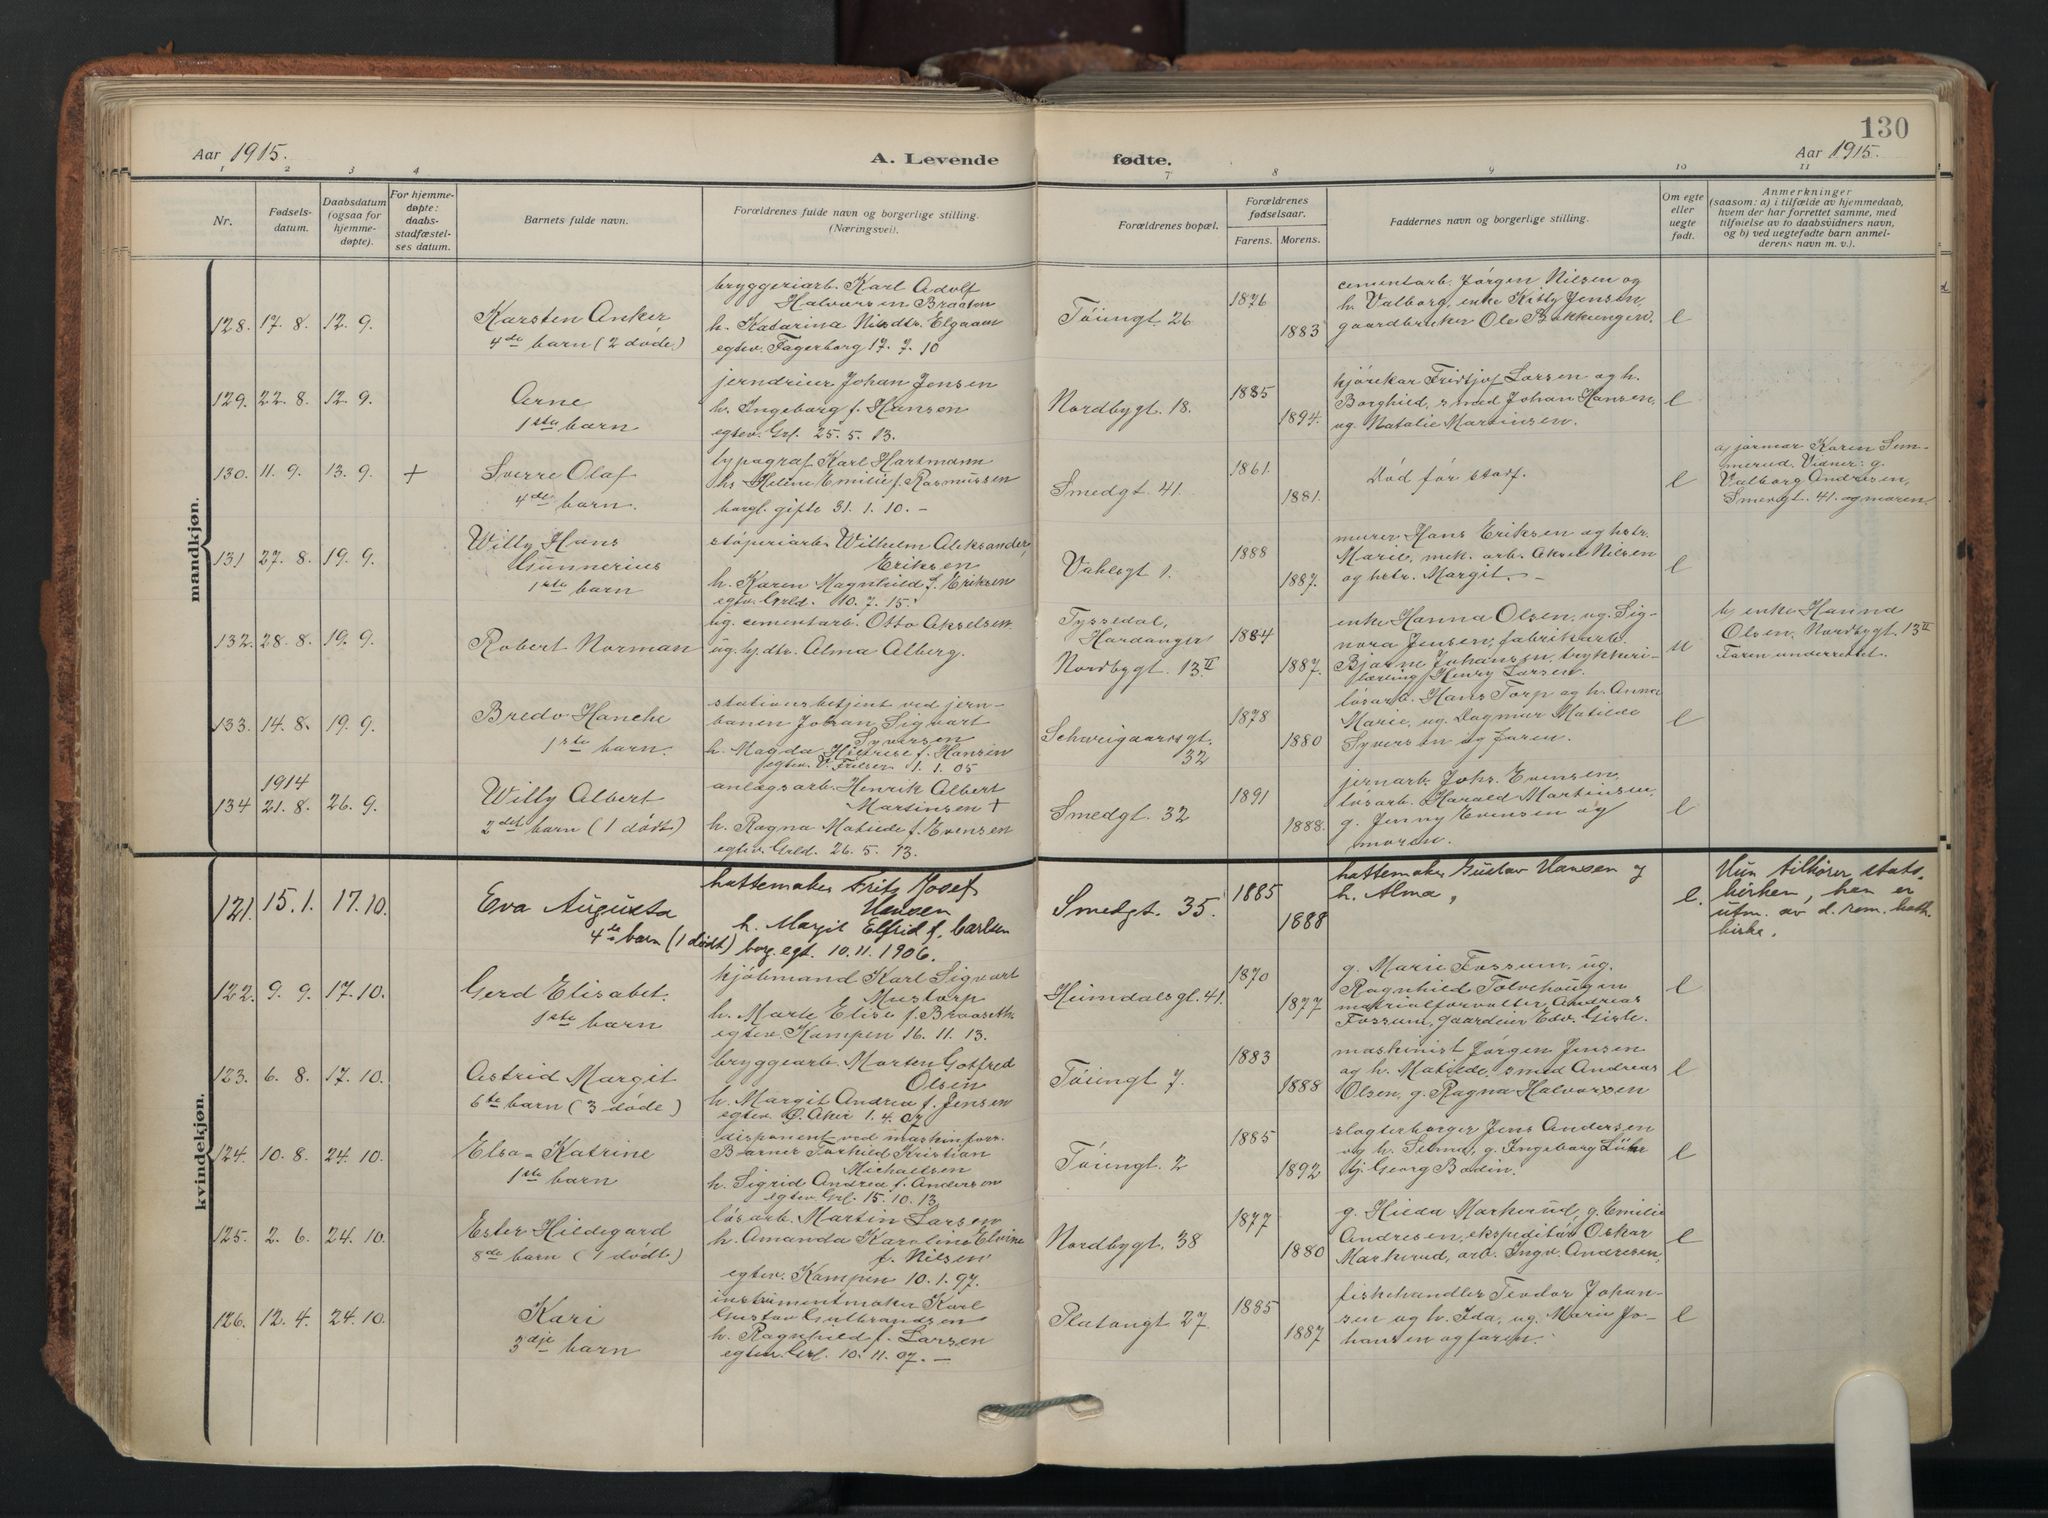 130
Aar 1915.
A. Levende
fødte.
Aar 1915.
1 2 3 4 7 8 9 10 11
Nr.
Fødsels-
datum.
Daabsdatum
(ogsaa for
hjemme-
døpte).
For hjemme-
døpte:
daabs-
stadfæstel-
ses datum.
Barnets fulde navn.
Forældrenes fulde navn og borgerlige stilling.
(Næringsvei).
Forældrenes bopæl.
Forældrenes
fødselsaar.
Farens. Morens.
Faddernes navn og borgerlige stilling.
Om egte
eller
uegte
født.
Anmerkninger
(saasom: a) i tilfælde av hjemmedaab,
hvem der har forrettet samme, med
tilføielse av to daabsvidners navn,
og b) ved uegtefødte barn anmel-
derens navn m. v.).
mandkjøn.
128. 17. 8. 12. 9.
Karsten Anker
4de barn (2 døde)
bryggeriarb. Karl Adolf
Halvorsen Braaton
h. Katarina Nilsdtr. Elgaaen
egtev. Fagerborg 17. 7. 10
Tøiengt. 26
1876
1883
cementarb. Jørgen Nilsen og
h. Valborg, enke Kitty Jensen,
gaardbruker Ole Bekkengen.
e
129. 22. 8. 12. 9.
Arne
1ste barn
jerndreier Johan Jensen
h. Ingeborg f. Hansen
egtev. Grl. 25. 5. 13.
Nordbygt. 18.
1885
1894.
kjørekar Fridtjof Larsen og h.
Borghild, smed Johan Hansen,
ug. Natalie Martinsen.
e
130. 11. 9. 13. 9. +
Sverre Olaf
4de barn.
typograf Karl Hartmann
h. Helene Emilie f. Rasmussen
borgl. gifte 31. 1. 10. -
Smedgt. 41.
1861.
1881.
Død før stadf.
e
a) jormor Karen Sem-
merud. Vidner: g.
Valborg Andresen,
Smedgt. 41. og moren.
131 27. 8. 19. 9.
Willy Hans
Gunnerius
1ste barn
støperiarb. Wilhelm Aleksander
Eriksen
h. Karen Magnhild f. Eriksen
egtev. Grld. 10. 7. 15.
Vahlsgt 1.
1888
1887.
murer Hans Eriksen og hstr.
Marie, mek. arb. Aksel Nilsen
og hstr. Margit. -
e
132. 28. 8. 19. 9.
Robert Norman
ug. cementarb. Otto Akselsen
ug. hj.dtr. Alma Alberg.
Tyssedal,
Hardanger
Nordbygt. 13 II
1884
1887.
enke Hanna Olsen, ug. Sig-
nora Jensen, fabrikarb.
Bjarne Johansen, trykkeri-
lærling Henry Larsen.
u
b) enke Hanna
Olsen, Nordbygt. 13 II
Faren underrettet.
133. 14. 8. 19. 9.
Bredo Hanche
1ste barn.
stationsbetjent ved jern-
banen Johan Sigvart
Syversen
h. Magda f. Hansen
egtev. V. Frelser 1. 1. 05
Schweigaardsgt.
32
1878
1880
løsarb. Hans Torp og h. Anna
Marie, ug. Dagmar Matilde
Syversen og faren.
e
1914
134 21. 8. 26. 9.
Willy Albert
2det barn (1 dødt)
anlægsarb. Henrik Albert
Martinsen +
h. Ragna Matilde f. Evensen
egtev. Grld. 26. 5. 13.
Smedgt. 32
1891
1888.
jernarb. Johs. Evensen,
løsarb. Harald Martinsen,
g. Jenny Evensen og
moren.
e
kvindekjøn.
121. 15. 1. 17. 10.
Eva Augusta
4de barn (1 dødt)
hattemaker Fritz Josef
Hansen
h. Margit Elfrid f. Carlsen
borg. egt. 10. 11. 1906.
Smedgt. 35.
1885
1888
hattemaker Gustav Hansen og
h. Alma,
e.
Hun tilhører stats-
kirken, han er
utm. av d. rom. kath.
kirke.
122. 9. 9. 17. 10.
Gerd Elisabet.
1ste barn
kjøbmand Karl Sigvart
Mustorp
h. Marte Elise f. Braaseth
egtev. Kampen 16. 11. 13.
Heimdalsgt. 41.
1870
1877
g. Marie Fossum, ug.
Ragnhild Tolvehougen
materialforvalter Andreas
Fossum, gaardeier Edv. Giske.
e
123. 6. 8. 17. 10.
Astrid Margit
6te barn (3 døde)
bryggearb. Morten Gotfred
Olsen
h. Margit Andrea f. Jensen
egtev. Ø. Aker 1. 4. 07
Tøiengt 7.
1883
1888
maskinist Jørgen Jensen
og h. Matilde, smed Andreas
Olsen, g. Ragna Halvorsen
e
124. 10. 8. 24. 10.
Elsa Katrine
1ste barn
disponent ved maskinforr.
Barner Torkild Kristian
Michaelsen
h. Sigrid Andrea f. Andersen
egtev. Grl. 15. 10. 13.
Tøiengt. 2
1885
1892
slagterborger Jens Andersen
og h. Selma, g. Ingeborg Lühr
tj. Georg Bodin.
e
125. 2. 6. 24. 10.
Ester Hildegard
8de barn (1 dødt)
løsarb. Martin Larsen
h. Amanda Karoline Elvine
f. Nilsen
egtev. Kampen 10. 1. 97.
Nordbygt. 38
1877
1880
g. Hilda Markerud, g. Emilie
Andresen, ekspeditør Oskar
Markerud, arb. Ingv. Andresen,
e
126. 12. 4. 24. 10.
Kari
3dje barn
instrumentmaker Karl
Gustav Gulbrandsen
h. Ragnhild f. Larsen
egtev. Grl. 10. 11. 07. -
Platongt 27.
1885
1887
fiskehandler Teodor Johan-
sen og h. Ida, ug. Marie Jo-
hansen og faren.
e